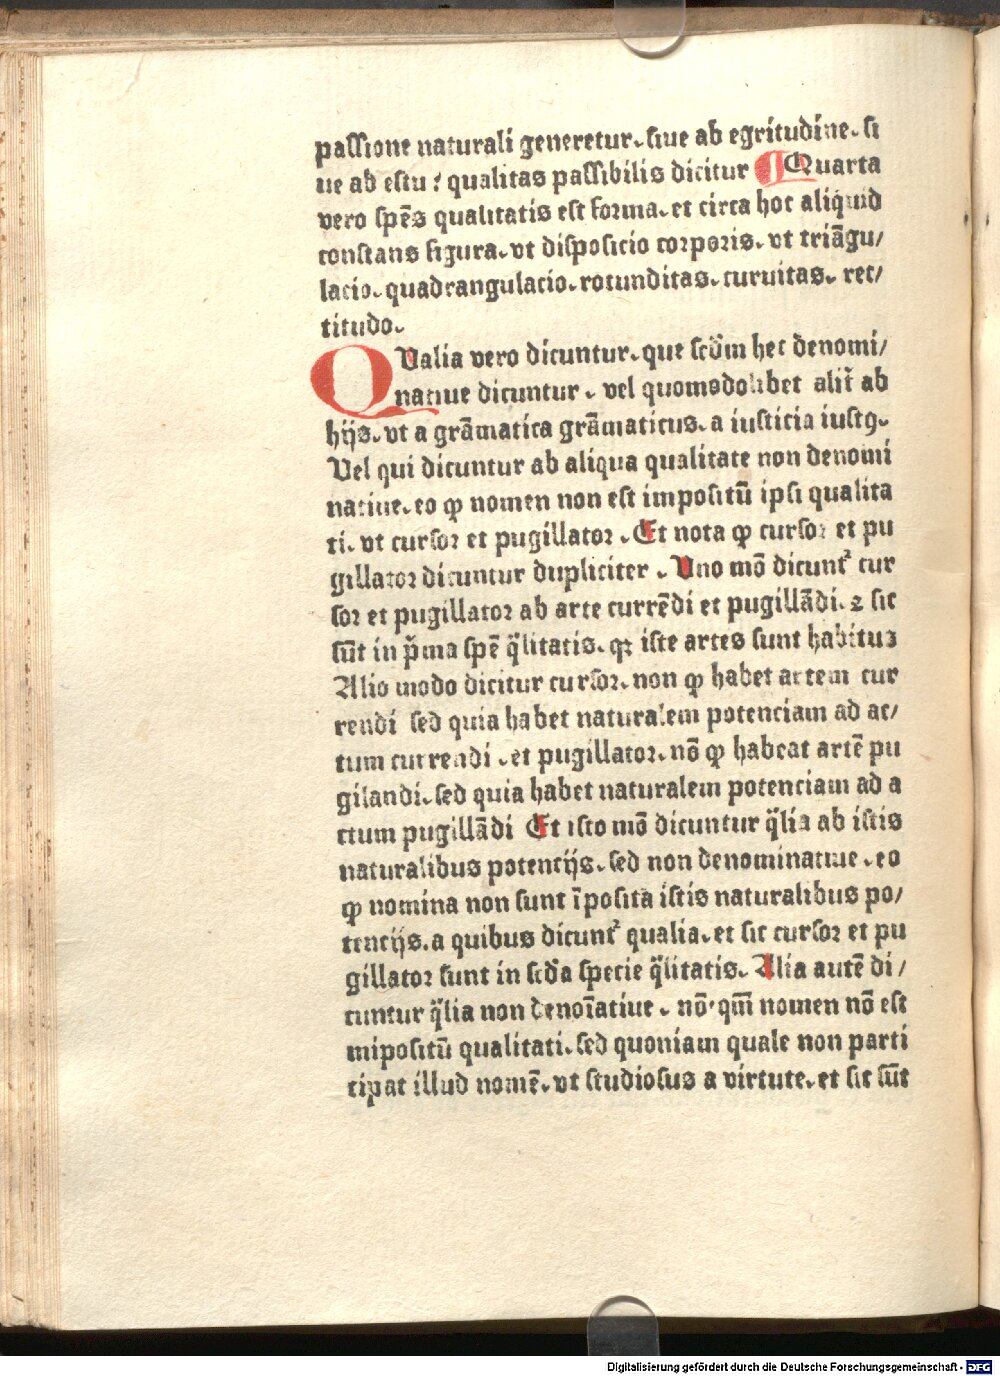 passione naturali generetur. siue ab egritudine. si
ue ab estu : qualitas passibilis dicitur Quarta
vero spēs qualitatis est forma. et circa hoc aliquid
constans figura. vt disposicio corporis. vt triāgu/
lacio. quadrangulacio. rotunditas. curuitas. rec/
titudo.
QValia vero dicuntur. que scdm̄ hec denomi/
natiue dicuntur . vel quomodolibet alit̄ ab
hijs. vt a grāmatica grāmaticus. a iusticia iustꝯ.
Vel qui dicuntur ab aliqua qualitate non denomi
natiue. eo ꝙ nomen non est impositū ipsi qualita
ti. vt cursor et pugillator . Et nota ꝙ cursor et pu
gillator dicuntur dupliciter . Vno mō dicunt᷑ cur
sor et pugillator ab arte currēdi et pugillādi. ꝛ sic
sūt in p̄ma spē q̄litatis. qꝛ iste artes sunt habitus
Alio modo dicitur cursor. non ꝙ habet artem cur
rendi sed quia habet naturalem potenciam ad ac/
tum currendi . et pugillator. nō ꝙ habeat artē pu
gilandi. sed quia habet naturalem potenciam ad a
ctum pugillādi Et isto mō dicuntur q̄lia ab istis
naturalibus potencijs. sed non denominatiue . eo
ꝙ nomina non sunt īposita istis naturalibus po/
tencijs. a quibus dicunt᷑ qualia. et sic cursor et pu
gillator sunt in scd̄a specie q̄litatis. Alia autē di/
cuntur q̄lia non denoīatiue . nō qm̄ nomen nō est
impositū qualitati. sed quoniam quale non parti
cipat illud nomē. vt studiosus a virtute. et sic sūt
Digitalisierung gefördert durch die Deutsche Forschungsgemeinschaft - DFG